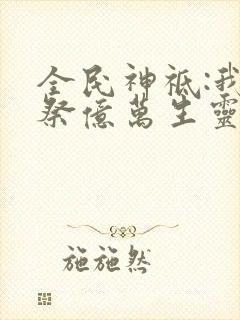 全民神祇:我
祭億萬生靈
施施然